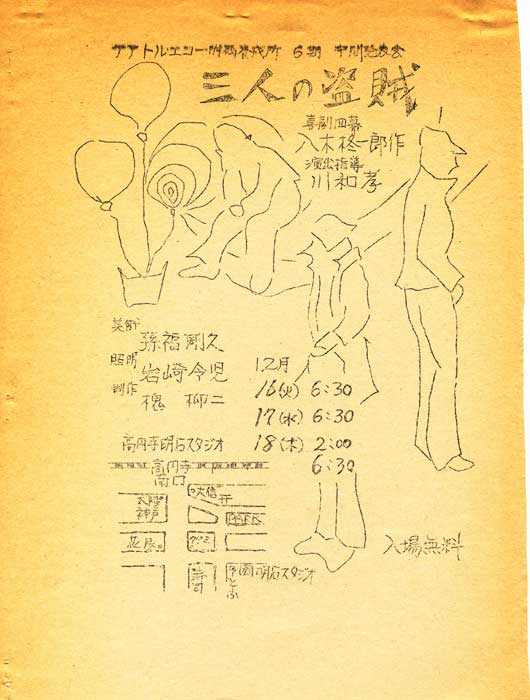 テアトルエコー附属養成所 6期 中間発表会
三人の盗賊
喜劇四幕
八木柊一郎作
演出指導
川和孝
美術 孫福剛久
照明 岩崎令児
制作 槐 柳二
12月
16(火) 6:30
17(水) 6:30
18(木) 2:00
6:30
高円寺明石スタジオ
高円寺
南口
太陽
神戸
花屋
寿司
明石スタジオ
入場無料